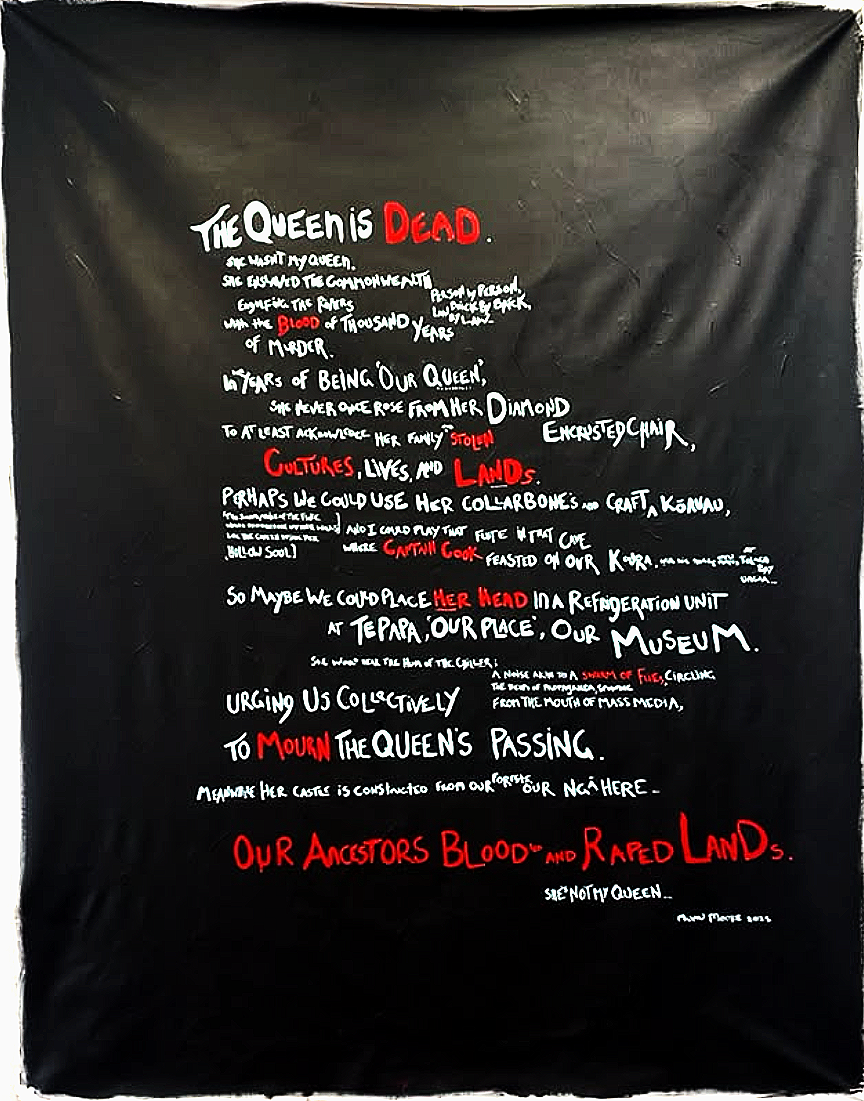 THE QUEEN IS DEAD.
SHE WASN'T MY QUEEN.
SHE ENSLAVED THE COMMONWEALTH
PERSON by PERSON,
BRICK By BRICK,
By LAW
THE RIVERS
WITH THE BLOOD of THOUSAND YEARS
OF MURDER.
YEARS OF BEING 'OUR QUEEN',
SHE NEVER ONCE ROSE FROM HER DIAMOND
ENCRUSTED CHAIR,
TO AT LEAST ACKNOWLEDGE HER FAMILY STOLEN
CULTURES, LIVES, AND LANDS.
PERHAPS WE COULD USE HER COLLARBONE'S AND CRAFT A KŌAUAU,
HOLLOW SOUL]
AND I COULD PLAY THAT FLUTE IN THAT CAVE
WHERE CAPTAIN COOK FEASTED ON OUR KOURA.
SO MAYBE WE COULD PLACE HER HEAD IN A REFRIGERATION UNIT
AT TE PAPA, 'OUR PLACE', OUR MUSEUM.
SHE WONT HEAR THE HUM OF THE CHILLER;
A NOISE AKIN TO A SWARM OF FLIES, CIRCLING
THE OF PROPAGANDA,
FROM THE MOUTH OF MASS MEDIA,
URGING US COLLECTIVELY
TO MOURN THE QUEEN'S PASSING.
MEANWHILE HER CASTLE IS CONSTRUCTED FROM OUR FORESTS OUR NGĀHERE -
OUR ANCESTORS BLOOD AND RAPED LANDS.
SHE'S NOT MY QUEEN...